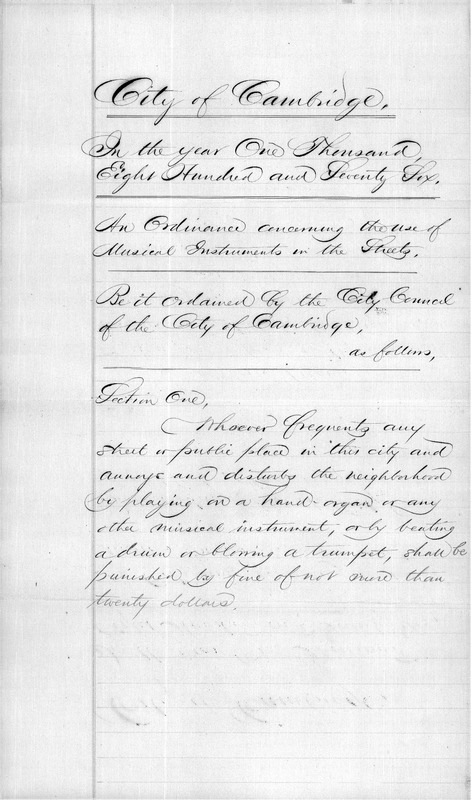 City of Cambridge.
In the year One Thousand,
Eight Hundred and Seventy Six.
An Ordinance concerning the use of
Musical Instruments in the Streets.
Be it ordained by the City Council
of the City of Cambridge,
as follows,
Section One,
Whoever frequents any
street or public place in this city and
annoys and disturbs the neighborhood
by playing on a hand-organ or any
other musical instrument, or by beating
a drum or blowing a trumpet, shall be
punished by fine of not more than
twenty dollars.